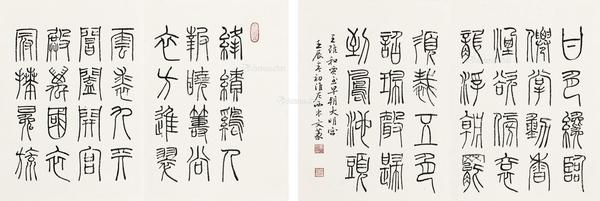 絳幘雞人
報曉籌尚
衣方進翠
雲裘九天
閶闔開宮
殿萬國衣
冠拜冕旒
日色纔臨
仙掌動香
煙欲傍袞
龍浮朝罷
須裁五色
詔珮聲歸
到鳳池頭
王維和賈至早朝大明宮
壬辰春初淮左